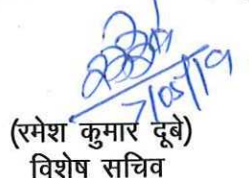 7/05/19
(रमेश कुमार दूबे)
विशेष सचिव